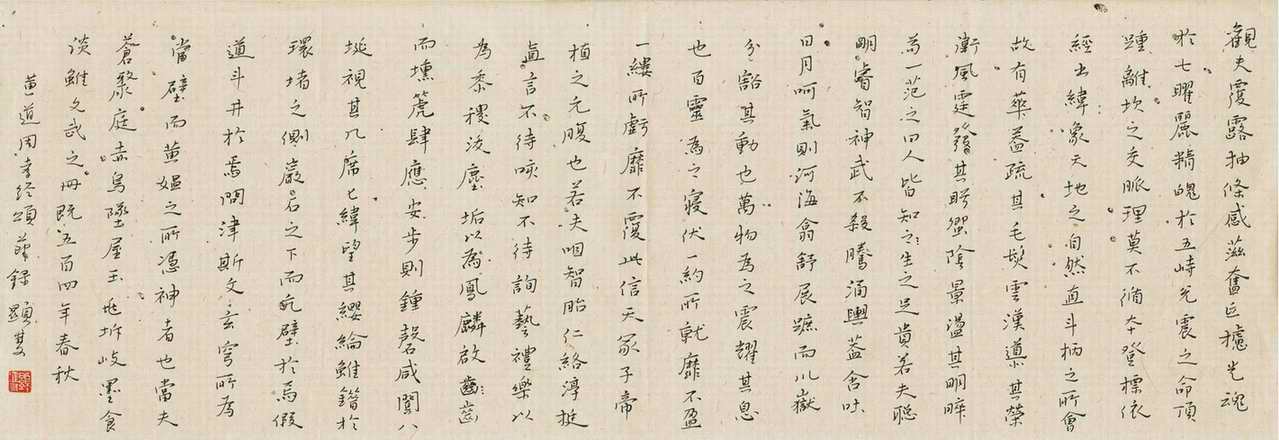 觀夫覆露抽條感滋奮巨櫨光魂
於七曜麗精魄於五峙光震之命頂
踵離坎之交脈理莫不循本登標依
經出緯象天地之自然直斗柄之所會
故有華蓋疏其毛髮雲漢導其榮
衛風霆發其盻蠁陰景盪其明晦
茍一范之曰人皆知之生之足貴若夫聰
明睿智神武不殺騰涌輿蓋含吐
日月呵氣則河海翕舒展蹠而川嶽
分豁其動也萬物為之震耀其息
也百靈為之寢伏一約所就靡不盈
一縷所虧靡不覆此信天冢子帝
植之元腹也若夫咽智胎仁絡淳挺
真言不待咳知不待詢藝禮樂以
為黍稷浚塵垢以為鳳麟啟齒
而壎篪肆應安步則鍾磬咸聞八
埏視其几席七緯望其纓綸雖錯於
環堵之側巖石之下而瓦壁於焉假
道斗井於焉問津斯文玄穹所為
當壁而黃媼之所憑神者也當夫
蒼聚庭赤烏墜屋玉兆坼岐墨食
談雖久哉之冊既五百四年春秋
黃道周孝經頌 節錄 顥雙